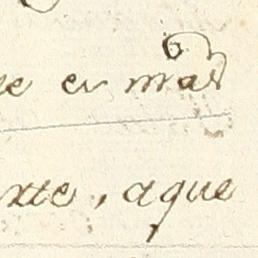 e es mas
xte, aque